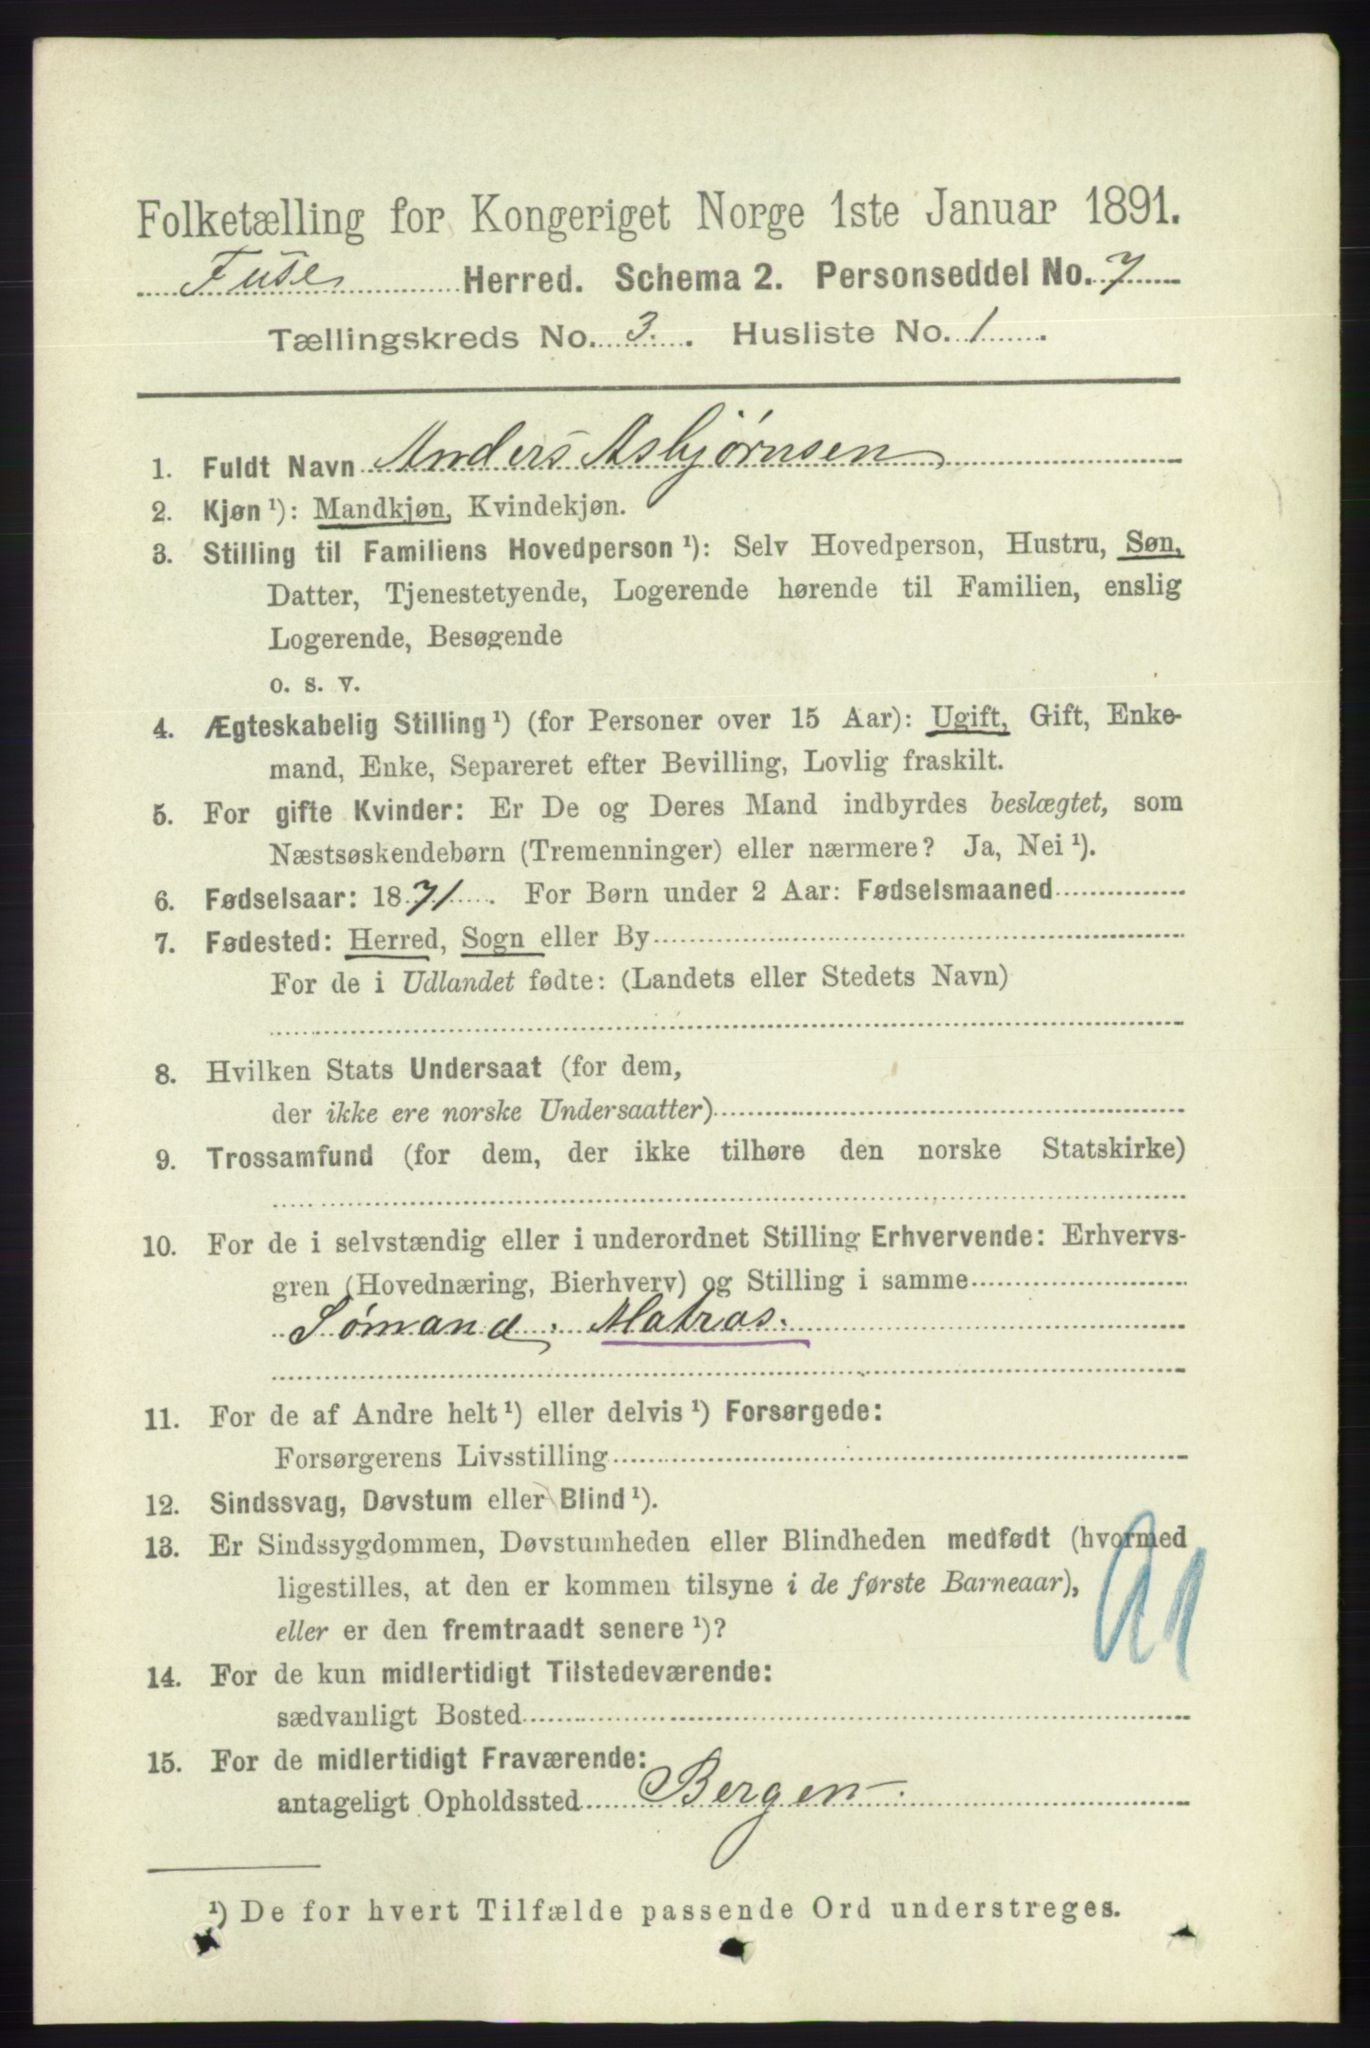 Folketælling for Kongeriget Norge 1ste Januar 1891.
Fuse Herred. Schema 2. Personseddel No. 7
Tællingskreds No. 3. Husliste No. 1
1. Fuldt Navn Anders Asbjørnsen
2. Kjøn ¹): Mandkjøn, Kvindekjøn.
3. Stilling til Familiens Hovedperson ¹): Selv Hovedperson, Hustru, Søn,
Datter, Tjenestetyende, Logerende hørende til Familien, enslig
Logerende, Besøgende
o. s. v.
4. Ægteskabelig Stilling ¹) (for Personer over 15 Aar): Ugift, Gift, Enke-
mand, Enke, Separeret efter Bevilling, Lovlig fraskilt.
5. For gifte Kvinder: Er De og Deres Mand indbyrdes beslægtet, som
Næstsøskendebørn (Tremenninger) eller nærmere? Ja, Nei ¹).
6. Fødselsaar: 1871. For Børn under 2 Aar: Fødselsmaaned
7. Fødested: Herred, Sogn eller By
For de i Udlandet fødte: (Landets eller Stedets Navn)
8. Hvilken Stats Undersaat (for dem,
der ikke ere norske Undersaatter)
9. Trossamfund (for dem, der ikke tilhøre den norske Statskirke)
10. For de i selvstændig eller i underordnet Stilling Erhvervende: Erhvervs-
gren (Hovednæring, Bierhverv) og Stilling i samme
Sømand. Matros.
11. For de af Andre helt ¹) eller delvis ¹) Forsørgede:
Forsørgerens Livsstilling
12. Sindssvag, Døvstum eller Blind ¹).
13. Er Sindssygdommen, Døvstumheden eller Blindheden medfødt (hvormed
ligestilles, at den er kommen tilsyne i de første Barneaar),
eller er den fremtraadt senere ¹)?
14. For de kun midlertidigt Tilstedeværende:
sædvanligt Bosted
15. For de midlertidigt Fraværende:
antageligt Opholdssted Bergen
¹) De for hvert Tilfælde passende Ord understreges.